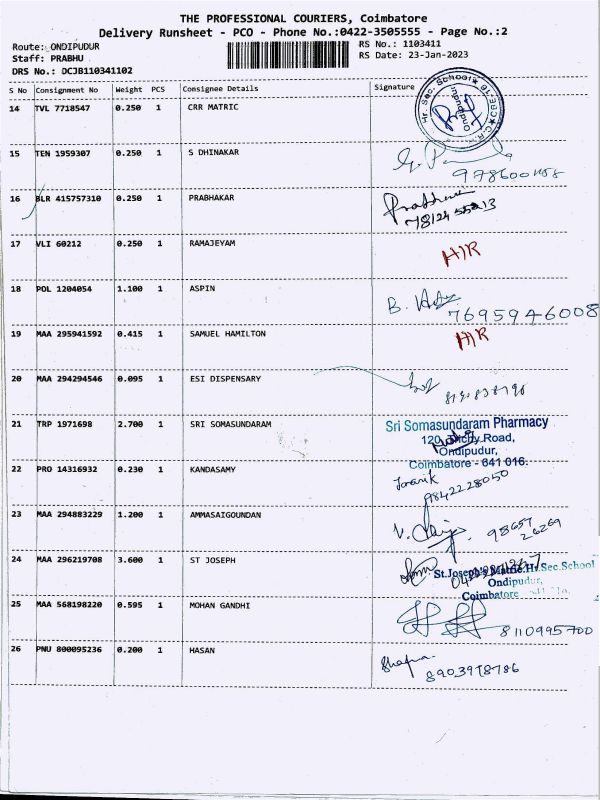 THE PROFESSIONAL COURIERS, Coimbatore
Delivery Runsheet - PCO - Phone No.:0422-3505555 - Page No.:2
Route: ONDIPUDUR
RS No.: 1103411
Staff: PRABHU
RS Date: 23-Jan-2023
DRS No.: DCJB110341102
S No Consignment No Weight PCS Consignee Details Signature
14 TVL 7718547 0.250 1 CRR MATRIC
Hr. Sec. School
Ondipudur
15 TEN 1959307 0.250 1 S DHINAKAR
16 BLR 415757310 0.250 1 PRABHAKAR
17 VLI 60212 0.250 1 RAMAJEYAM H/R
18 POL 1204054 1.100 1 ASPIN B.
7695946008
19 MAA 295941592 0.415 1 SAMUEL HAMILTON H/R
20 MAA 294294546 0.095 1 ESI DISPENSARY
21 TRP 1971698 2.700 1 SRI SOMASUNDARAM Sri Somasundaram Pharmacy
120, Trichy Road,
Ondipudur,
Coimbatore - 641 016.
22 PRO 14316932 0.230 1 KANDASAMY
9842228050
23 MAA 294883229 1.200 1 AMMASAIGOUNDAN V.
98657
26269
24 MAA 296219708 3.600 1 ST JOSEPH St.Joseph's Matric.Hr.Sec.School
Ondipudur,
Coimbatore
25 MAA 568198220 0.595 1 MOHAN GANDHI
8110995700
26 PNU 800095236 0.200 1 HASAN
8903978786